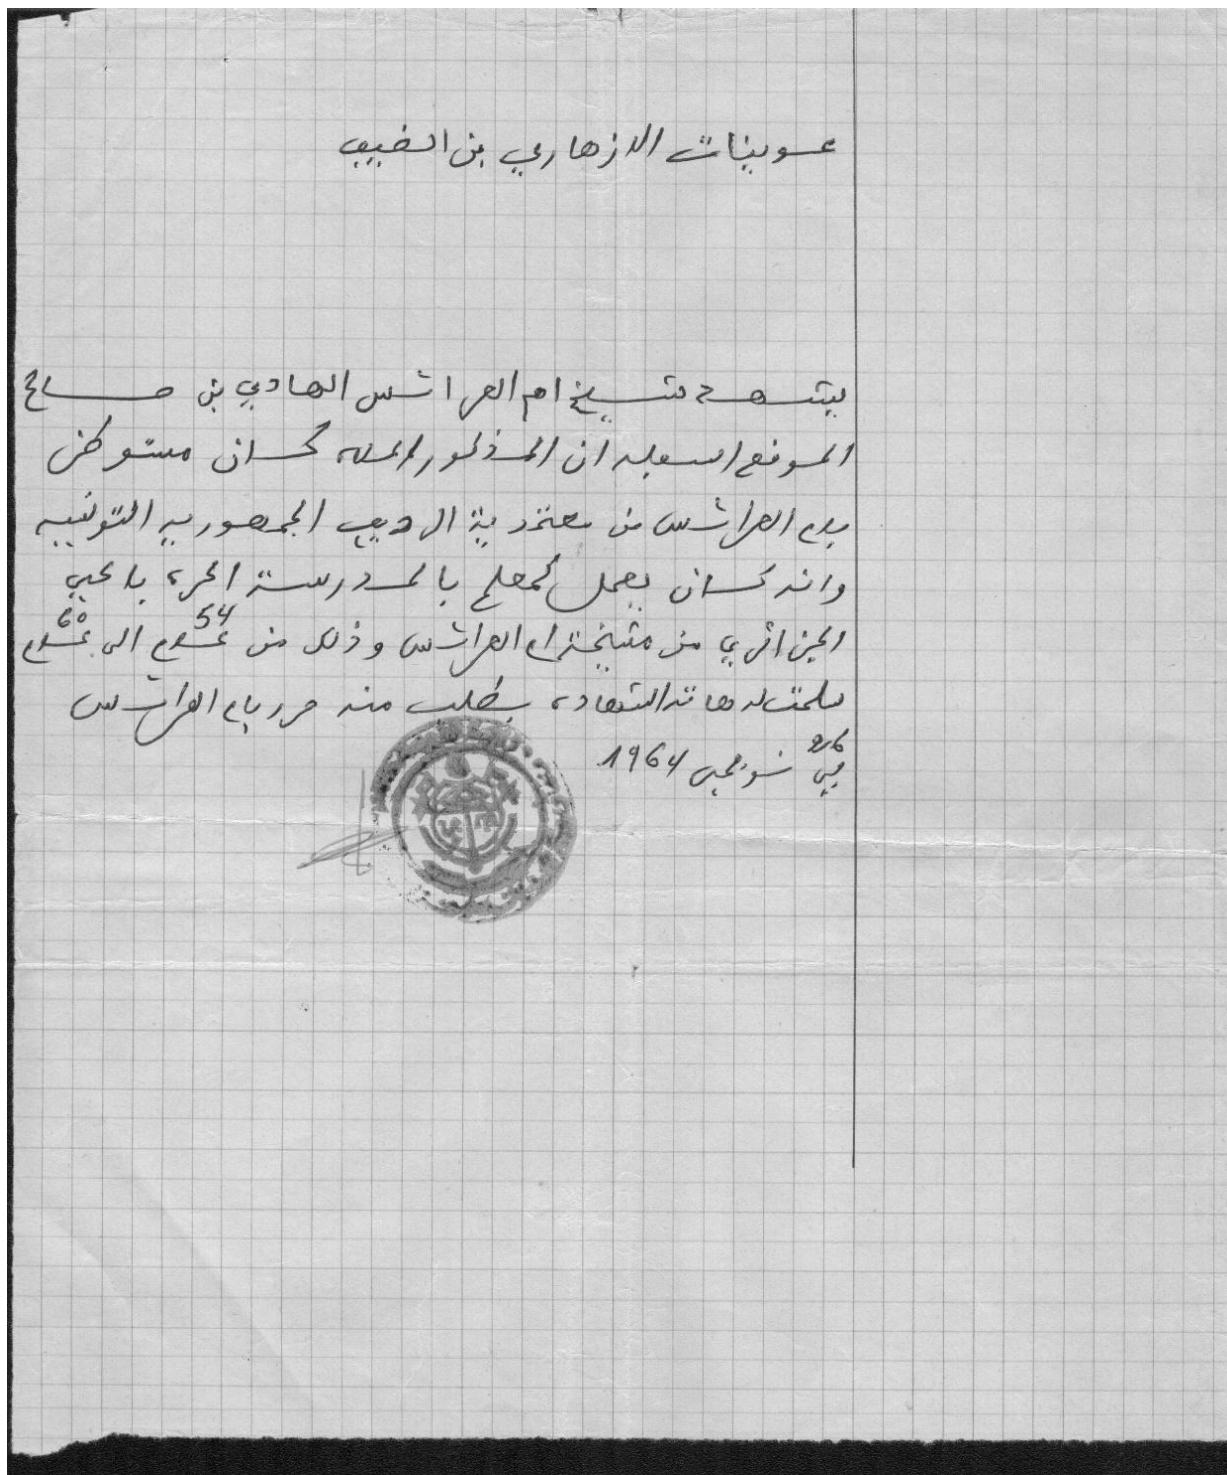 عوينات الازهاري بن الضيف
يشهد شيخ ام العرائس الهادي بن صالح
الموقع اسفله ان المذكور اعلاه كان مستوطن
بام العرائس من معتمدية الرديف الجمهوريه التونسيه
وانه كان يعمل كمعلم بالمدرسة الحرة بالحي
الجزائري من مشيخة ام العرائس وذلك من عام 54 الى عام 60
سلمت له هاته الشهادة بطلب منه حرر بام العرائس
في 26 نونمبر 1964